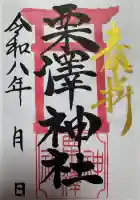 奉拝
栗澤神社
令和八年 月